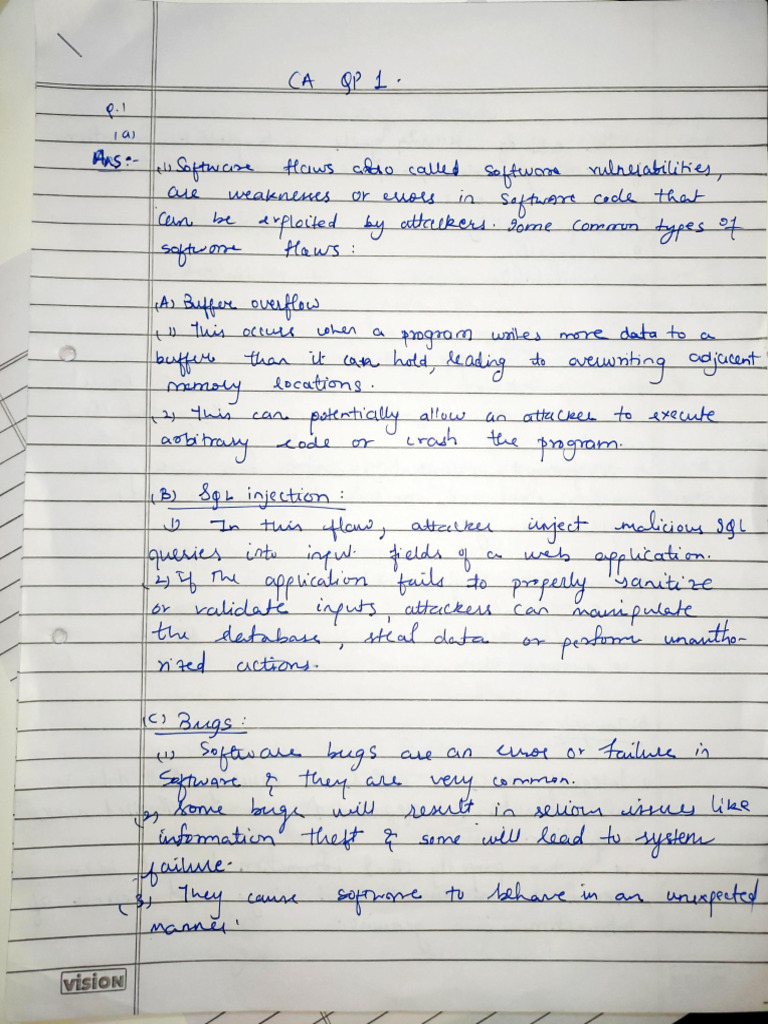 CA QP 1.
Q.1
(a)
Ans:-
(1) Software flaws also called software vulnerabilities,
are weaknesses or errors in software code that
can be exploited by attackers. Some common types of
software flaws:
(A) Buffer overflow
(1) This occurs when a program writes more data to a
buffer than it can hold, leading to overwriting adjacent
memory locations.
(2) This can potentially allow an attacker to execute
arbitrary code or crash the program.
(B) SQL injection:
1) In this flaw, attacker inject malicious SQL
queries into input fields of a web application.
2) If the application fails to properly sanitize
or validate inputs, attackers can manipulate
the database, steal data or perform unautho-
rized actions.
(C) Bugs:
(1) Software bugs are an error or failure in
software & they are very common.
(2) Some bugs will result in serious issues like
information theft & some will lead to system
failure.
(3) They cause software to behave in an unexpected
manner.
vision